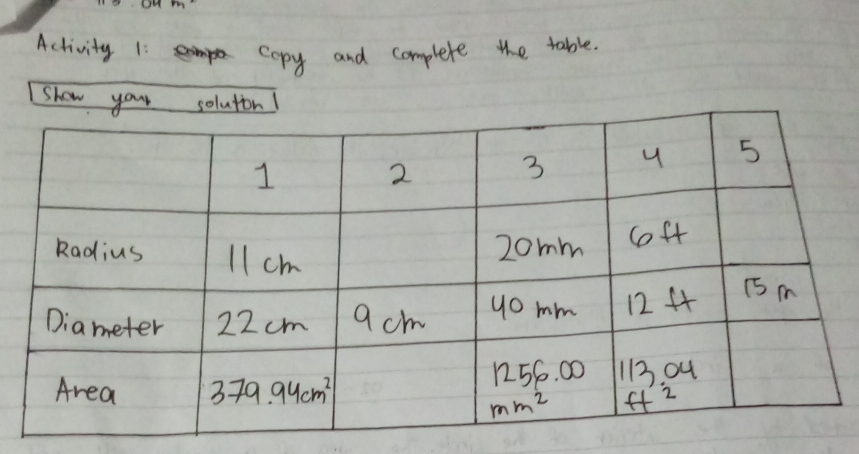 Activity 1: Copy and complete the table.
Show your solution
1 2 3 4 5
Radius 11 cm 20 mm 6 ft
Diameter 22 cm 9 cm 40 mm 12 ft 15 m
Area 379.94 cm² 1256.00 mm² 113.04 ft²